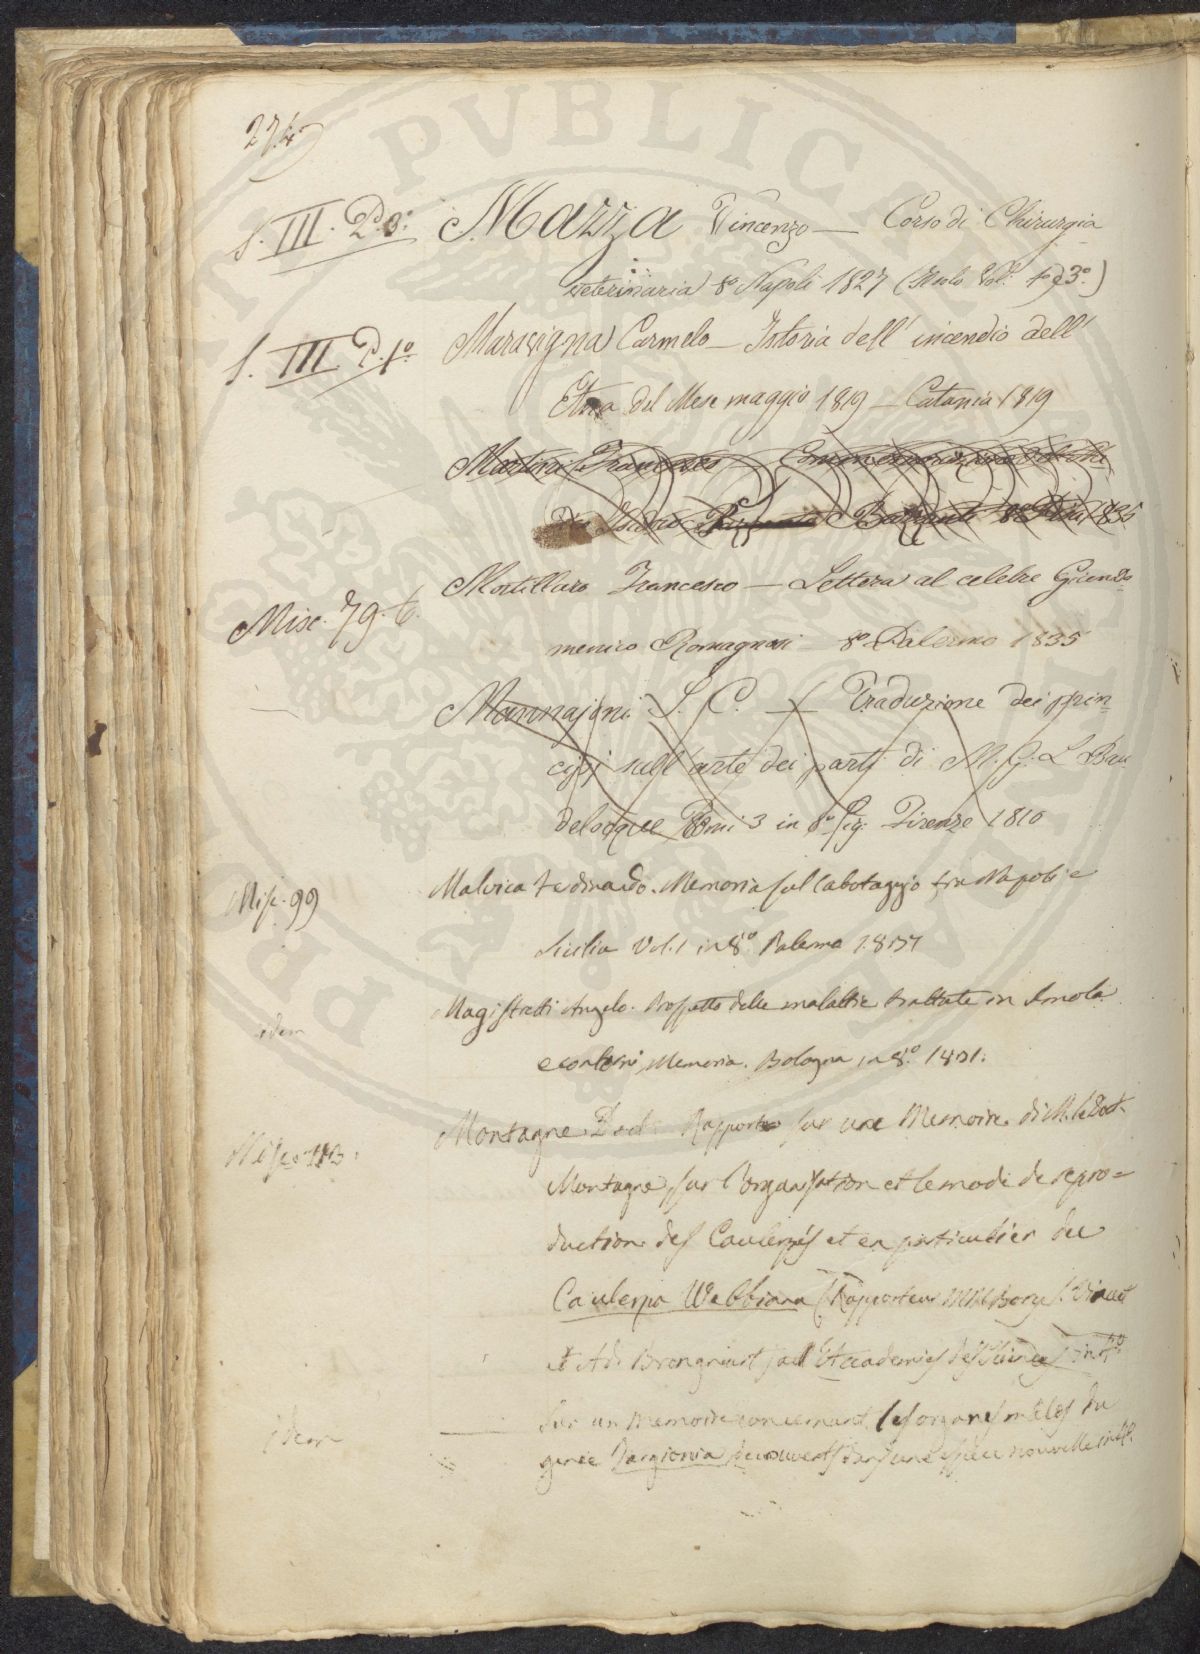 274
S. III. P. 3.° Mazza Vincenzo — Corso di Chirurgia
veterinaria 8° Napoli 1827 (Solo Vol. 1° e 3°)
S. III P. 1° Maravigna Carmelo — Istoria dell' incendio dell'
Etna del Mese maggio 1819 — Catania 1819
Martini Francesco —
8° Pisa 1835
Misc. 79. 6. Mortillaro Francesco — Lettera al celebre Giando
menico Romagnosi — 8° Palermo 1835
Mannajoni S. C. — Traduzione dei prin
cipj sull' arte dei parti di M. G. L. Bau
delocque Tomi 3 in 8° fig. Firenze 1810
Misc. 99 Malvica Ferdinando. Memoria sul Cabotaggio fra Napoli e
Sicilia Vol. 1 in 8.° Palermo 1837
idem Magistretti Angelo. Prospetto delle malattie trattate in Imola
e contorni, Memoria. Bologna in 8.° 1831.
Misc. 113. Montagne Doct. Rapporto sur une Memoire di M. le Doct.
Montagne, sur l'organisation et le mode de repro=
duction des Caulerpés et en particulier du
Caulerpa Webbiana (Rapporteurs MM. Bory S. Vincent
et Ad. Brongniart) all' Accademies des Sciences in 4°
idem —— Sur un Memoire concernant les organes mâles du
genre Targionia decouverts dans une espece nouvelle in 4°.
PVBLICA